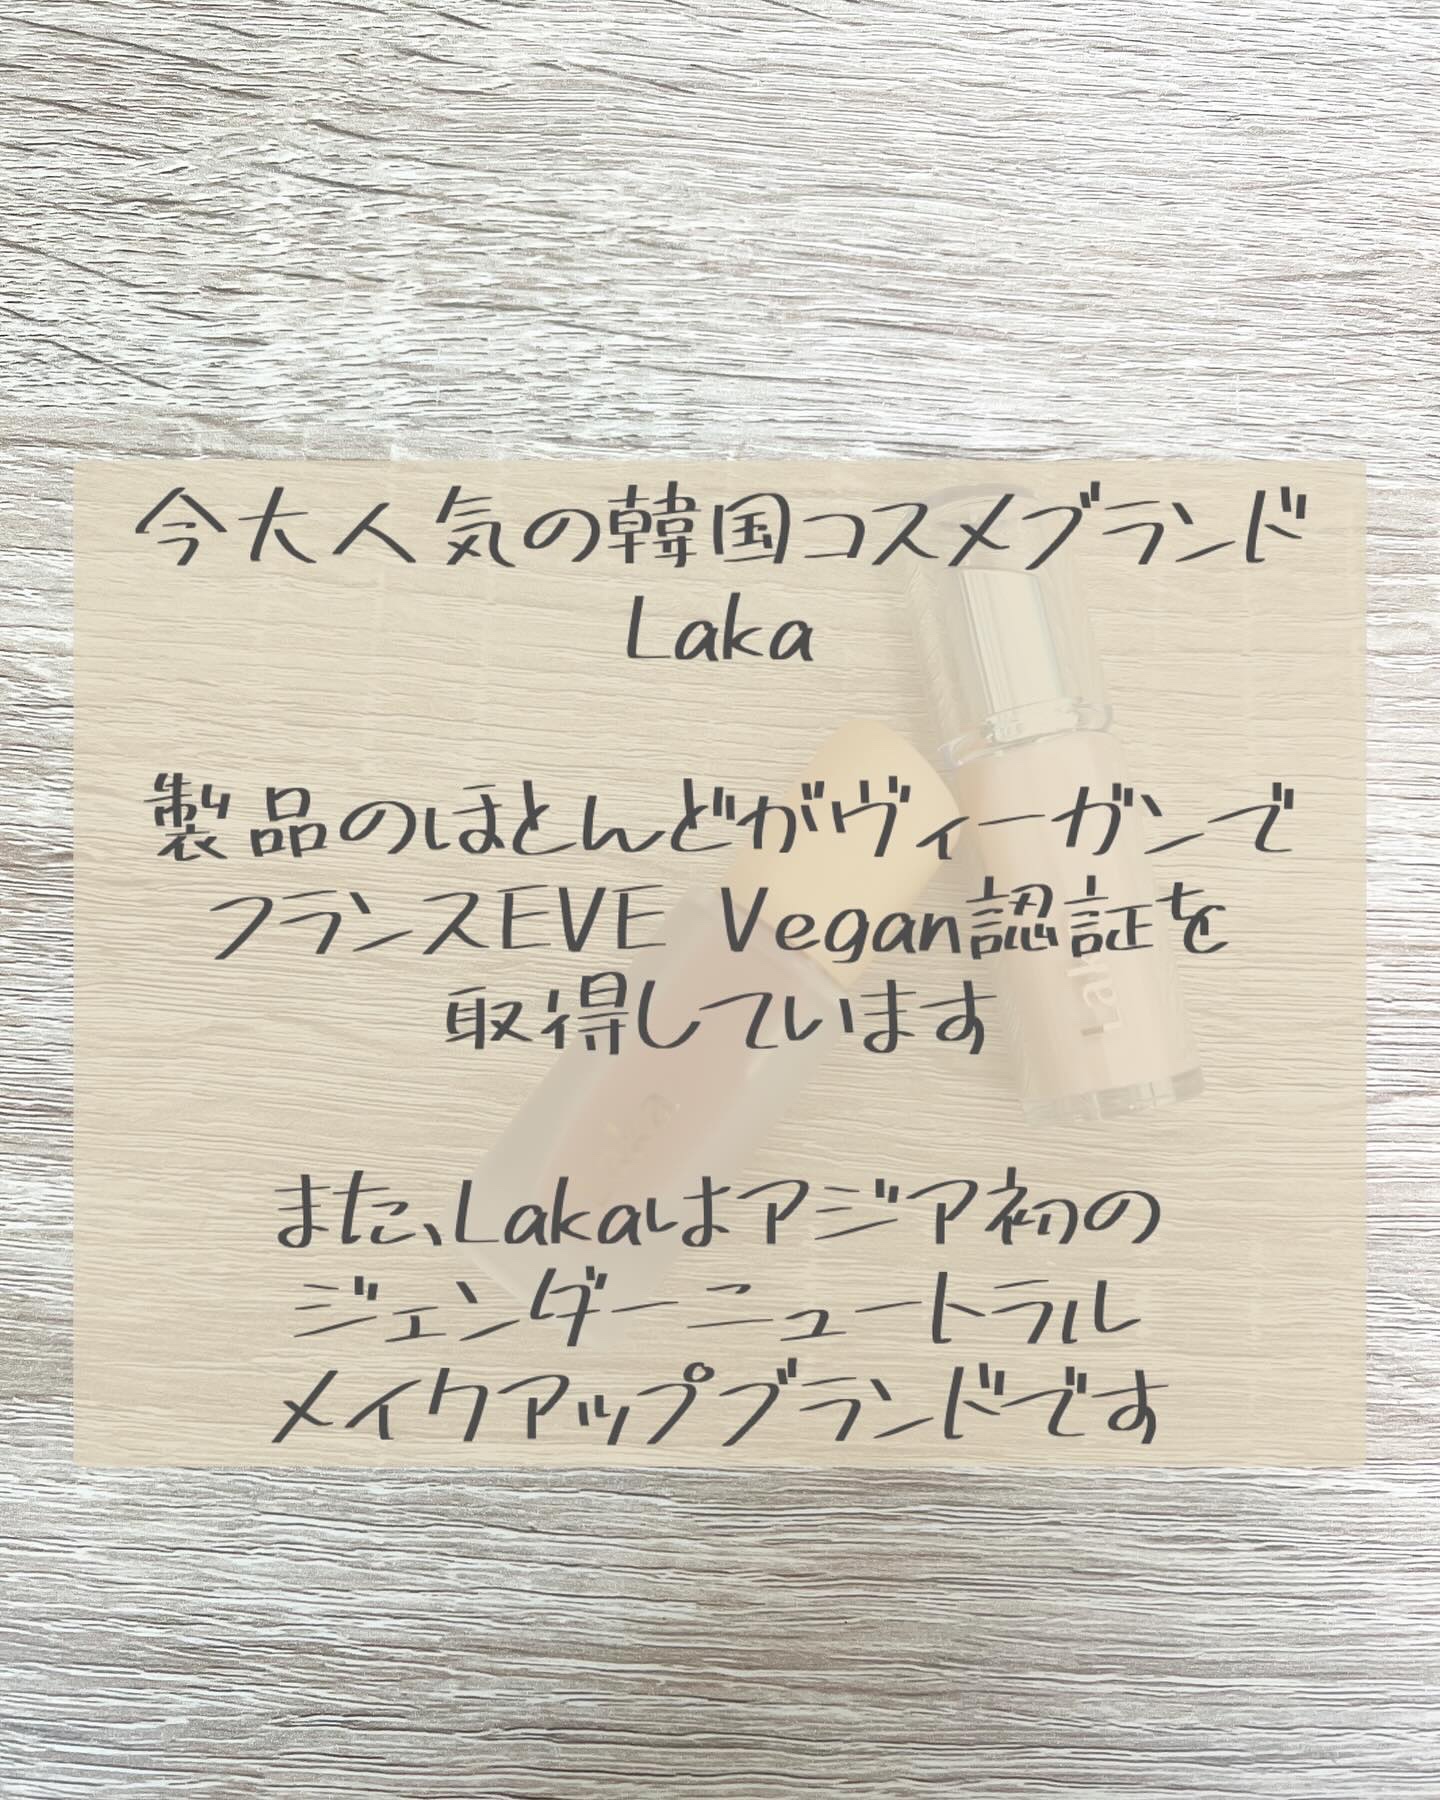 今大人気の韓国コスメブランド
Laka
製品のほとんどがヴィーガンで
フランスEVE Vegan認証を
取得しています
また、Lakaはアジア初の
ジェンダーニュートラル
メイクアップブランドです
Laka